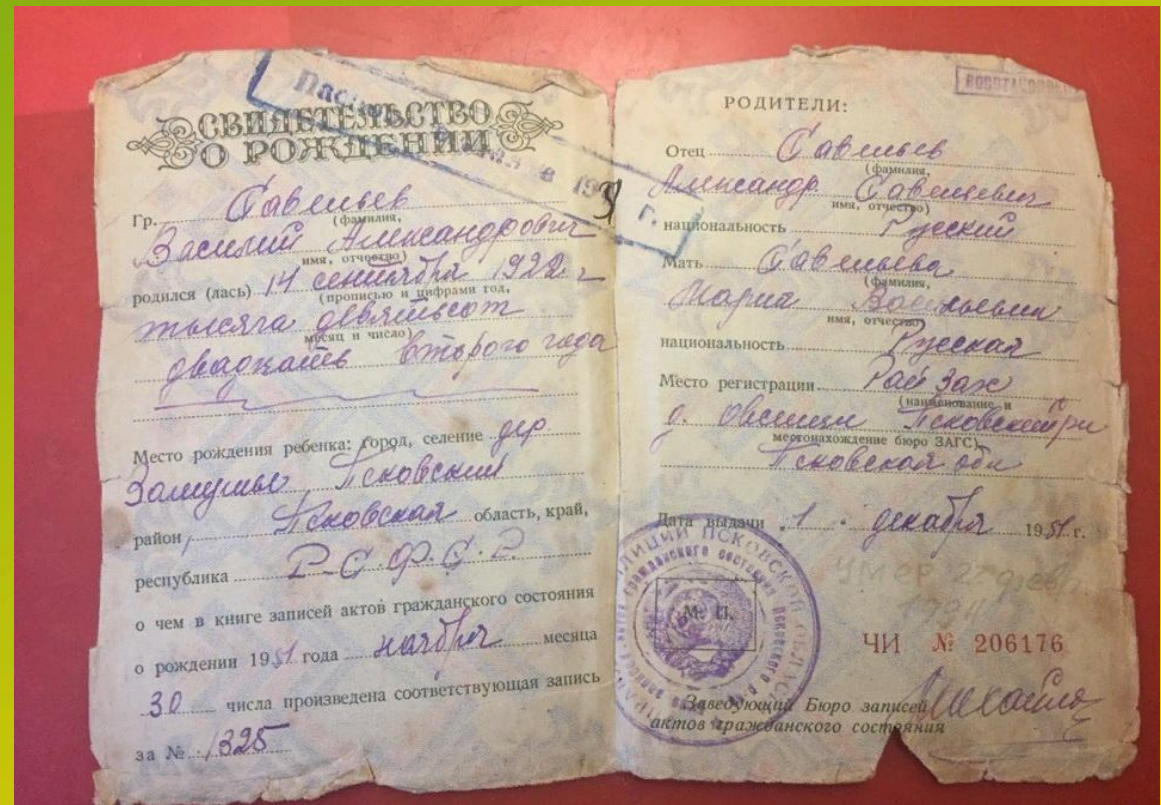 СВИДЕТЕЛЬСТВО
О РОЖДЕНИИ
Гр. Савельев
(фамилия,
Василий Александрович
имя, отчество)
родился (лась) 14 сентября 1922 г
(прописью и цифрами год,
тысяча девятьсот
месяц и число)
двадцать второго года
Место рождения ребенка: город, селение дер.
Псковский
район, Псковская область, край,
республика Р.С.Ф.С.Р.
о чем в книге записей актов гражданского состояния
о рождении 1951 года ноября месяца
30 числа произведена соответствующая запись
за № 1325
в 195 г.
РОДИТЕЛИ:
Отец Савельев
(фамилия,
Александр Савельевич
имя, отчество)
национальность Русский
Мать Савельева
(фамилия,
Мария
имя, отчество)
национальность Русская
Место регистрации Рай Загс
(наименование и
д.
местонахождение бюро ЗАГС)
Псковской обл
Дата выдачи 1 декабря 1951 г.
М. П.
ЧИ № 206176
Заведующий Бюро записей
актов гражданского состояния